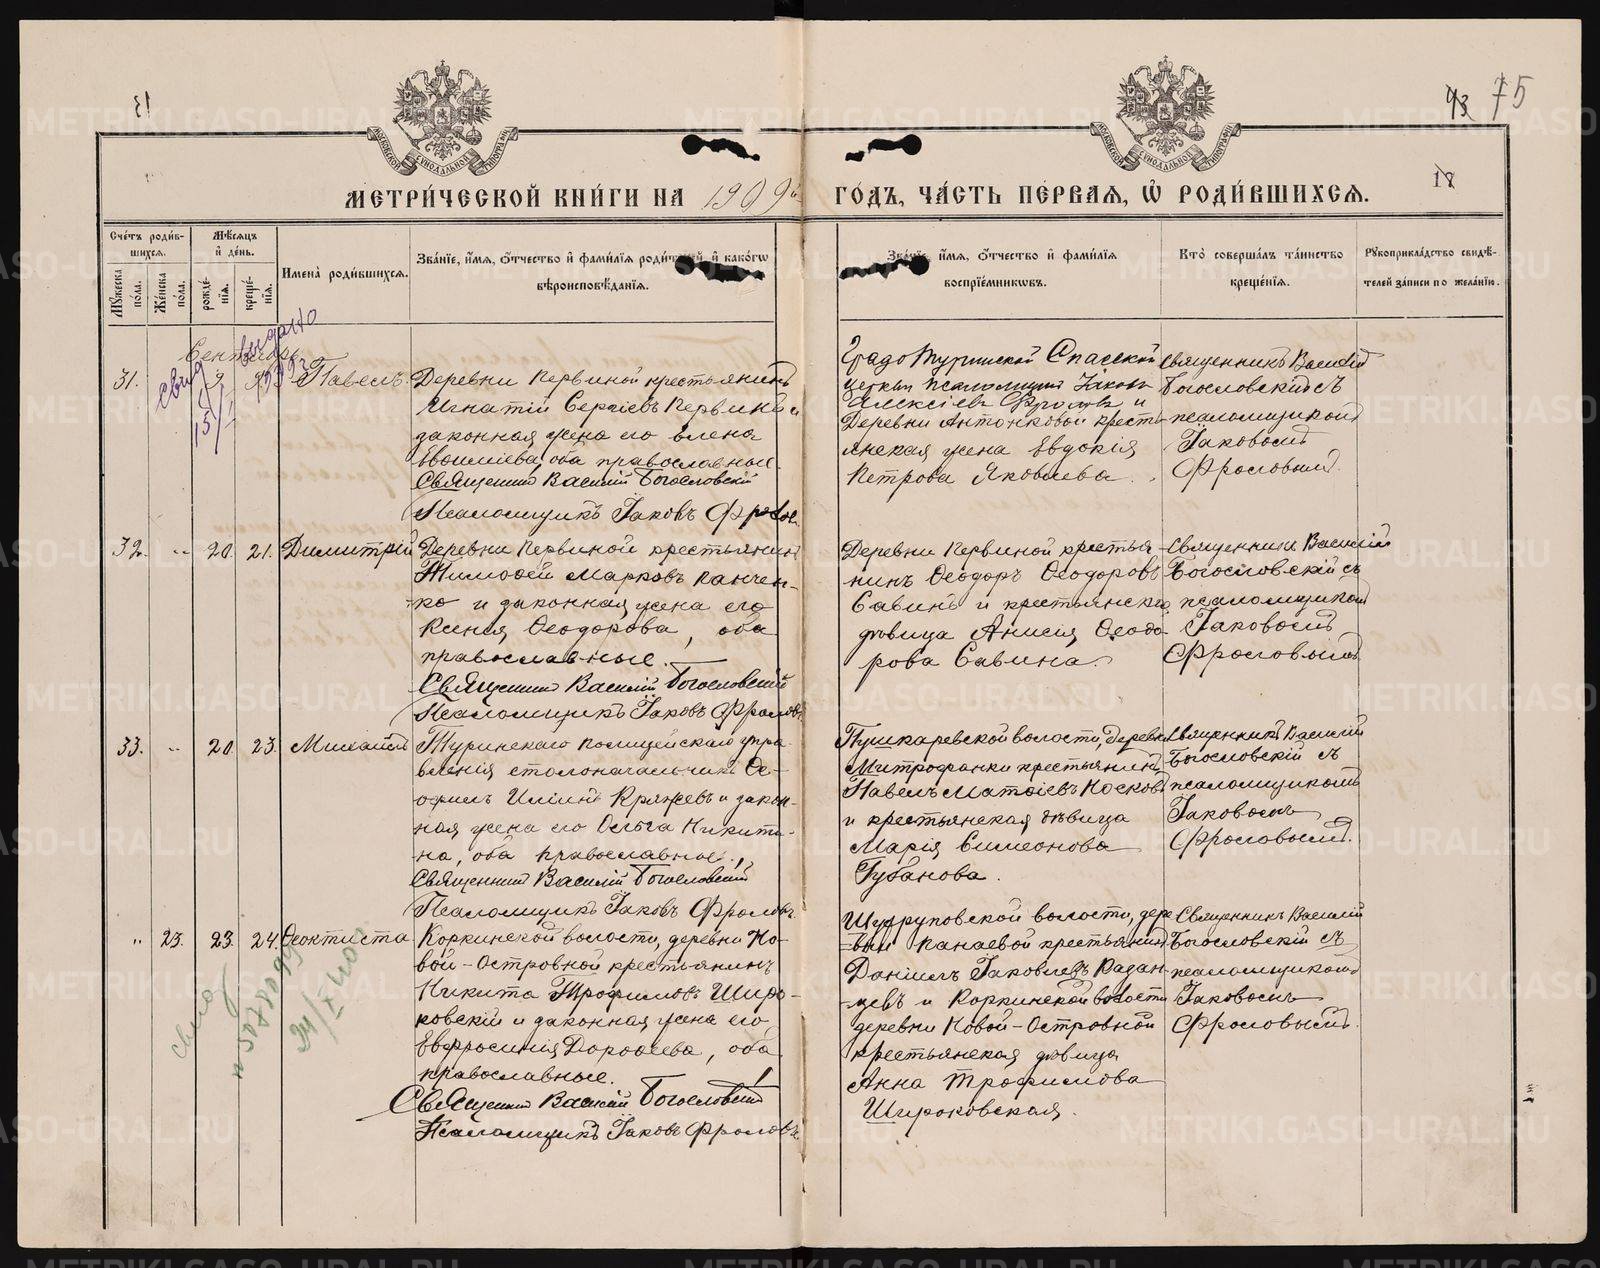 31
43 75
18
МЕТРИ́ЧЕСКОЙ КНИ́ГИ НА 1909й ГО́ДЪ, ЧА́СТЬ ПЕ́РВАЯ, Ѽ РОДИ́ВШИХСЯ.
Сче́тъ роди́в-
шихся.
Мѣ́сяцъ
и҆ де́нь.
Мꙋ́жеска по́ла.
Же́нска по́ла.
рожде́-
нїя.
креще́-
нїя.
И҆мена̀ роди́вшихся.
Зва́нїе, и҆́мя, ѻ҆́тчество и҆ фами́лїя роди́телей и҆ како́гѡ
вѣроисповѣ́данїя.
Зва́нїе, и҆́мя, ѻ҆́тчество и҆ фами́лїя
воспрїе́мниковъ.
Кто̀ соверша́лъ та́инство
креще́нїя.
Рꙋкоприкла́дство свидѣ́-
телей за́писи по жела́нїю.
Сентябрь
31. Павелъ
Деревни Первиной крестьянинъ
Игнатій Сергіевъ Первинъ и
законная жена его Елена
Евфиміева, оба православные.
Священникъ Василій Богословскій
Псаломщикъ Іаковъ Фроловъ
Градо Туринской Спасской
церкви псаломщикъ Іаковъ
Алексіевъ Фроловъ и
Деревни Антонковой кресть-
янская жена Евдокія
Петрова Яковлева.
Священникъ Василій
Богословскій съ
псаломщикомъ
Іаковомъ
Фроловымъ.
32. " 20. 21. Димитрій
Деревни Первиной крестьянинъ
Тимофей Марковъ Панчен-
ко и законная жена его
Ксенія Ѳеодорова, оба
православные.
Священникъ Василій Богословскій
Псаломщикъ Іаковъ Фроловъ
Деревни Первиной крестья-
нинъ Ѳеодоръ Ѳеодоровъ
Савинъ и крестьянская
дѣвица Анисія Ѳеодо-
рова Савина.
Священникъ Василій
Богословскій съ
псаломщикомъ
Іаковомъ
Фроловымъ
33. " 20. 23. Михаилъ
Туринскаго полицейскаго упра-
вленія столоначальникъ Ѳе-
офилъ Иліинъ Кряжевъ и закон-
ная жена его Ольга Никити-
на, оба православные.
Священникъ Василій Богословскій
Псаломщикъ Іаковъ Фроловъ.
Пушкаревской волости, деревни
Митрофанки крестьянинъ
Павелъ Матѳіевъ Носковъ
и крестьянская дѣвица
Марія Симеонова
Губанова.
Священникъ Василій
Богословскій съ
псаломщикомъ
Іаковомъ
Фроловымъ.
" 23. 23. 24. Ѳеоктиста
Коркинской волости, деревни Но-
вой-Островной крестьянинъ
Никита Трофимовъ Широ-
ковскій и законная жена его
Евфросинія Дороѳеева, оба
православные.
Священникъ Василій Богословскій
Псаломщикъ Іаковъ Фроловъ
Шухруповской волости, дере-
вни Панаевой крестьянинъ
Даніилъ Іаковлевъ Казан-
цевъ и Коркинской волости
деревни Новой-Островной
крестьянская дѣвица
Анна Трофимова
Широковская.
Священникъ Василій
Богословскій съ
псаломщикомъ
Іаковомъ
Фроловымъ.
METRIKI.GASO-URAL.RU